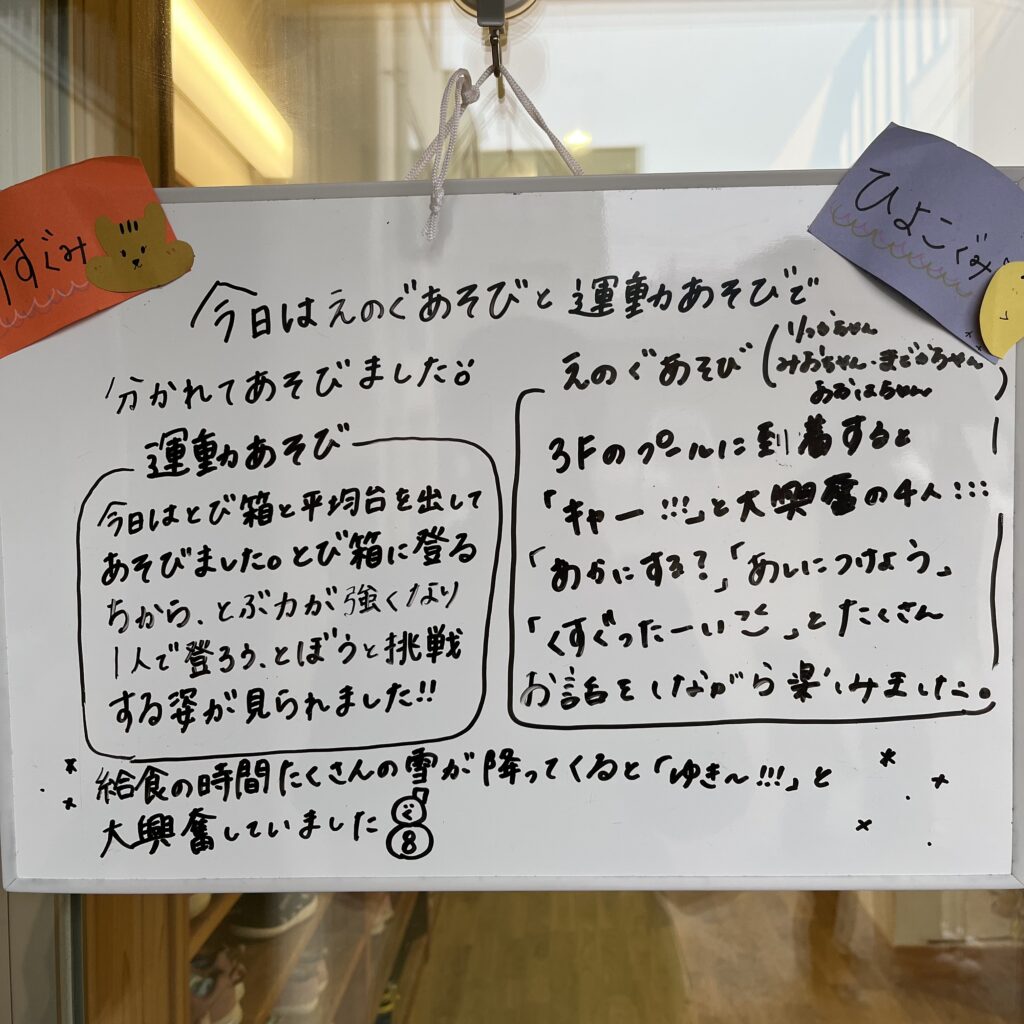 すぐみ
ひよこぐみ
今日はえのぐあそびと運動あそびで
分かれてあそびました
運動あそび
今日はとび箱と平均台を出して
あそびました。とび箱に登る
ちから、とぶ力が強くなり
1人で登ろう、とぼうと挑戦
する姿が見られました!!
えのぐあそび
みおちゃん・まどかちゃん
あおはちゃん
3Fのプールに到着すると
「キャー!!!」と大興奮の4人!!!
「あかにする?」「あしにつけよう」
「くすぐったーい」とたくさん
お話をしながら楽しみました。
給食の時間たくさんの雪が降ってくると「ゆき〜!!!」と
大興奮していました